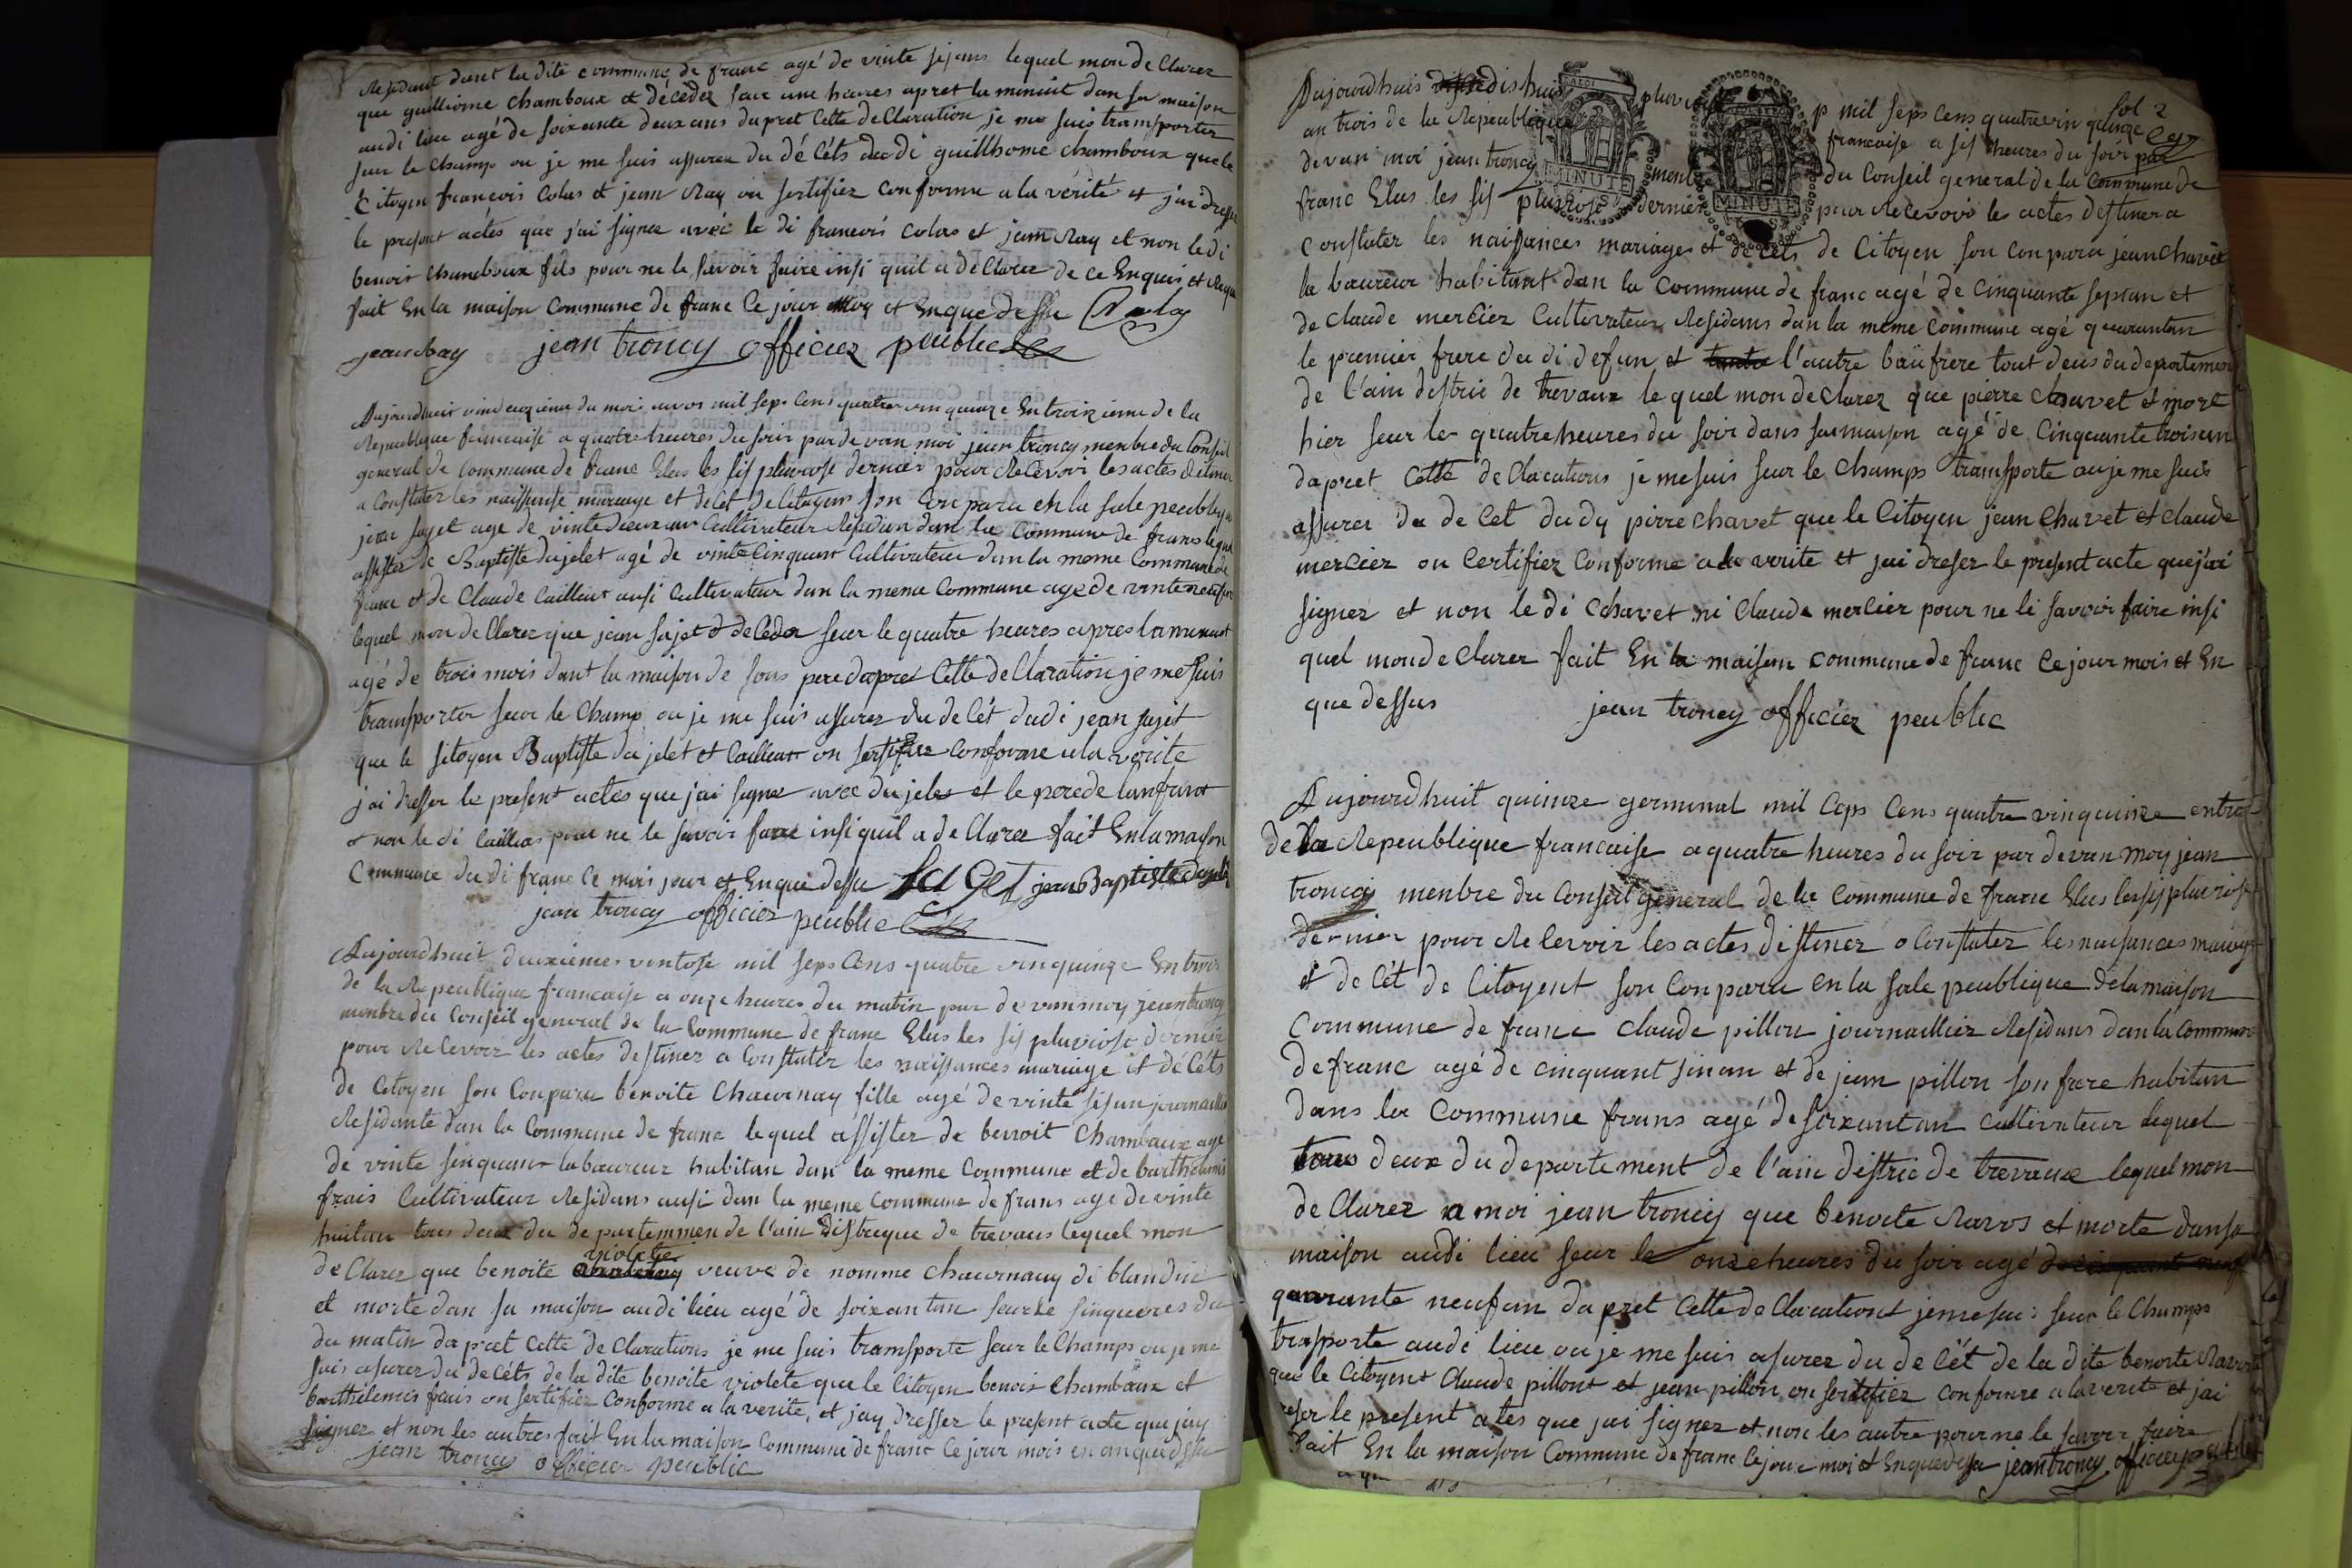 Residant dant la dite commune de franc agé de vinte sis ans lequel mon de Clarez
que guilliome chamboux et décedez sur une heures apret la minuit dan sa maison
audi lieu agé de soixante deux ans dapret Cette de Claration je me suis transporter
sur le Champ ou je me suis assurez du décéts du di guillhome chamboux que le
Citoyen francois Colas et jean Ray on sertifiez conforme a la vérité et j'ai dresse
le present actés que j'ai signez avéc le di francois colas et jean Ray et non le di
benoit chamboux fils pour ne le savoir faire insi quil a de Clarez de ce Enquis et Requi
fait En la maison Commune de franc Ce jour moy et En que dessu Colas
jean Ray jean troncy officiez peublic
Aujourdhuit vindeuzieme du mois mil seps Cens quatre vin quinze En troizieme de la
Republique francaise a quatre heures du soir par de van moi jean troncy menbre du Conseil
general de Commune de franc Elus les sis pluviose dernier pour Recevoir les actes détiner
a Constater les naissense mariage et décét de Citoyen son Conparu en la sale peubliq
jean sajet age de vinte deux an Cultivateur Residan dan la Commune de frans lequel
assister de Baptiste dujelet agé de vinte Cinquant Cultivateur dan la meme Commune de
franc et de Claude Cailleur ausi Cultivateur dan la meme Commune age de vinte neuf an
lequel mon de Clarez que jean sajet d decedez seur le quatre heures apres la minuit
agé de trois mois dant la maison de sons pere dapret Cette de Claration je me suis
transporter seur le Champ ou je me suis assurez du de Cét dudi jean sajet
que le sitoyen Baptiste dujelet et Cailleur on sertifiez Conforme a la vérite
j'ai dresser le present actes que j'ai signez avec dujelet et le pere de lanfant
et non le di Cailleas pour ne le savoir faire insi quil a de Clarez fait En la maison
Commune du di franc Ce mois jour et En que dessu SAJET jean Baptiste Dujelet
jean troncy officiez peublic
Aujourdhuit deuxiemes ventose mil seps Cens quatre vinquinze En trois
de la Republique francaise a onze heures du matin par de van moy jean troncy
menbre du Conseil general de la Commune de franc Elus les sis pluviose dernier
pour Recevoir les actes destinez a Constater les naissances mariage et décéts
de Citoyen son Conparu benoite Chavrnay fille agé de vinte sis an journailli
Residante dan la Commune de franc lequel assister de benoit Chambaux age
de vinte sinquant laboureur habitan dan la meme Commune et de barthélemis
frais Cultivateur Residans ausi dan la meme Commune de frans age de vinte
huitan tous deux du de partemmen de l'ain Districque de trevaus lequel mon
de Clarez que benoite violete veuve de nomme chavrnauy di blandin
et morte dan sa maison audi lieu agé de soixantan seur le sinqueures du
du matin dapret Cette de Clarations je me suis transporte seur le Champs ou je me
suis asurez du decéts de la dite benoite violete que le Citoyen benoit Chambaux et
barthélemis frais on sertifiez Conforme a la verite, et j'ay dresser le present acte que jay
signez et non les autres fait En la maison Commune de franc Ce jour mois en an que dessu
jean troncy officier peublic
fol 2
Aujourdhuis dis huis pluviose mil seps Cens quatrevin quinze
an trois de la Republique francaise a sis heures du soir par
devan moi jean troncy menbre du Conseil general de la Commune de
franc Elus les sis pluviose dernier pour Recevoir les actes destiner a
Constater les naissances mariages et décéts de Citoyen son conparu jean Chavet
la boureur habitant dan la Commune de franc agé de cinquante septan et
de claude mercier Cultivateur Residans dan la même Commune agé quarantan
le premier frere du di defun et l'autre bau frere tout deus du departemen
de l'ain destric de trevaux le quel mon de Clarez que pierre chavet et mort
hier seur le quatre heures du soir dans sa maison agé de Cinquante troisan
dapret Cette de Clarations je me suis seur le Champs transporte ou je me suis
assurer du de Cet du dy pirre chavet que le Citoyen jean Chavet et claude
merciez on Certifiez Conforme a la verite et j'ai dreser le present acte que j'ai
signez et non le di Chavet ni Claude mercier pour ne le savoir faire insi
quel mon de Clarez fait En la maison commune de franc Ce jour mois et En
que dessus jean troncy officiez peublic
Aujourdhuit quinze germinal mil Ceps Cens quatre vinquinze entroi
de la Republique francaise a quatre heures du soir par devan moy jean
troncy menbre du Conseil general de la Commune de franc Elus les sis pluviose
dernier pour Recevoir les actes distinez a Constatez les naisances mariage
et de Cét de Citoyent son Conparu en la sale peublique de la maison
Commune de franc claude pillon journailliez Residans dan la Commune
de franc agé de cinquant sinan et de jean pillon son frere habitan
dans la Commune frans agé de soixantan Cultivateur lequel
tous deux du departement de l'ain distric de trevaux lequel mon
de Clarez a moi jean troncy que benoite Ravos et morte dan sa
maison audi lieu seur le onze heures du soir agé de
quarante neuf an dapret Cette de Clarationt je me suis seur le Champs
trasporte audi lieu ou je me suis asurez du de Cét de la dite benoite Ravos
que le Citoyent Claude pillont et jean pillon on sertifiez conforme a la verité et j'ai
reser le present actes que j'ai signez et non les autre pour ne le savoir faire
fait En la maison Commune de franc Ce jour moi et En que dessu jean troncy officiez peublic